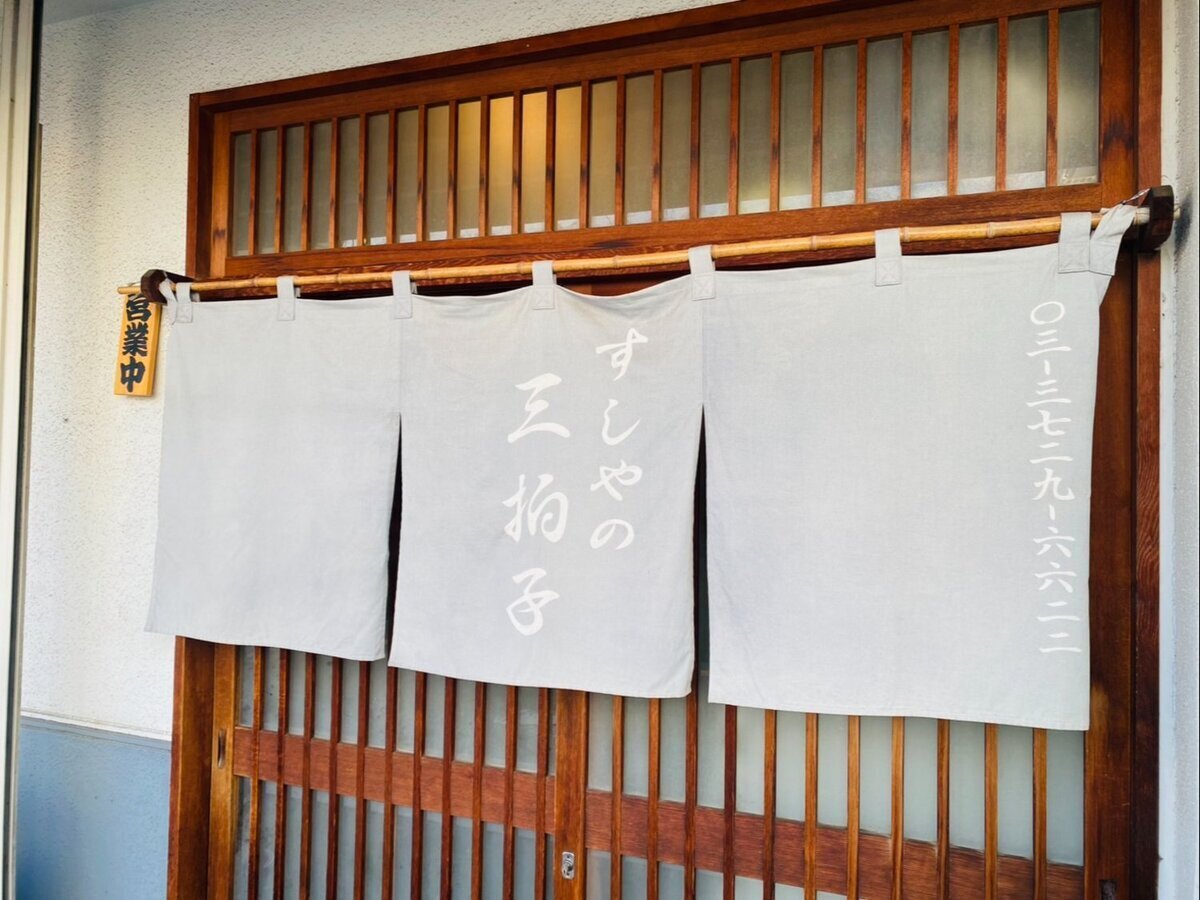 〇三-三七二九-六六二二
すしやの
三拍子
営業中